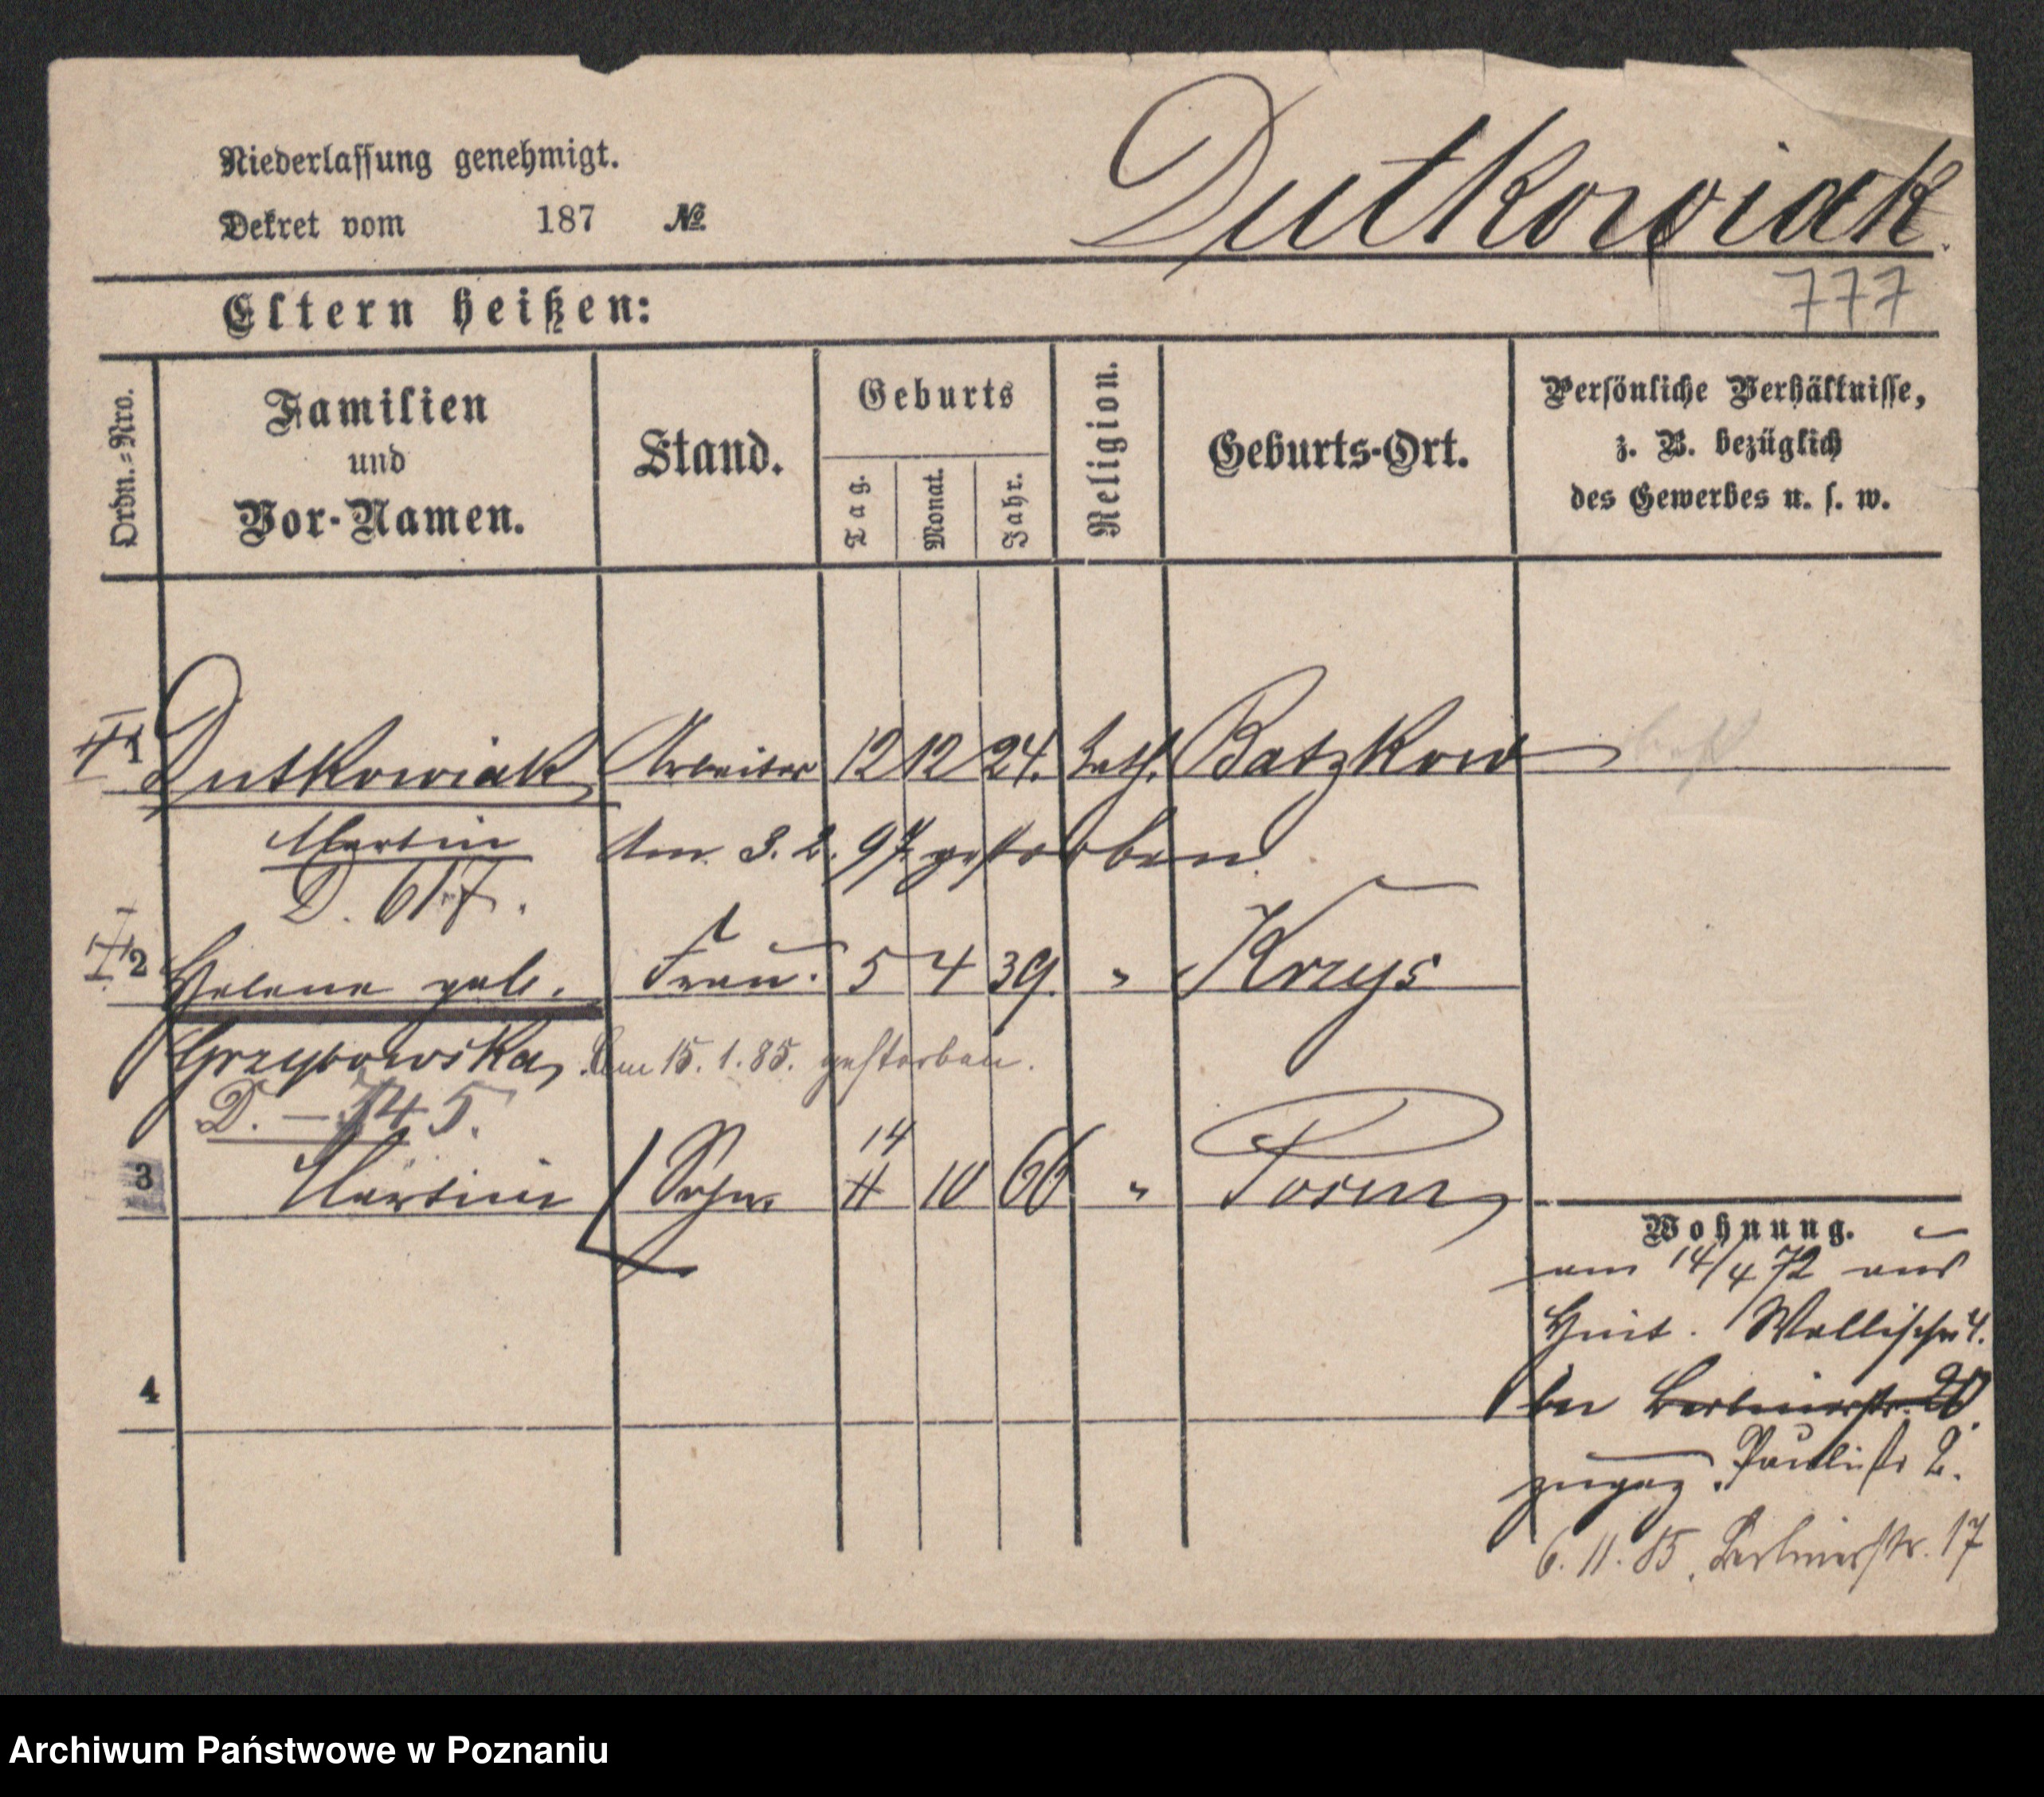 Niederlassung genehmigt.
Dekret vom 187 №
Dutkowiak.
777
Eltern heißen:
Ordn.=Nro.
Familien
und
Vor-Namen.
Stand.
Geburts
Tag.
Monat.
Jahr.
Religion.
Geburts-Ort.
Persönliche Verhältnisse,
z. B. bezüglich
des Gewerbes u. s. w.
1 Dutkowiak Arbeiter 12 12 24. kath. Batzkowo
Martin Am 3. 2. 97 gestorben.
D. 617.
2 Helene geb. Frau. 5 4 39. " Krzys
Grzybowska, Am 15. 1. 85. gestorben.
D. — 745.
14
3 Martin Sohn 11 10 66 " Posen
4
Wohnung.
am 14/4 72 aus
Hint. Wallischei 4.
Berlinerstr.
zugez. Paulistr 2.
6. 11. 85. Berlinerstr. 17
Archiwum Państwowe w Poznaniu